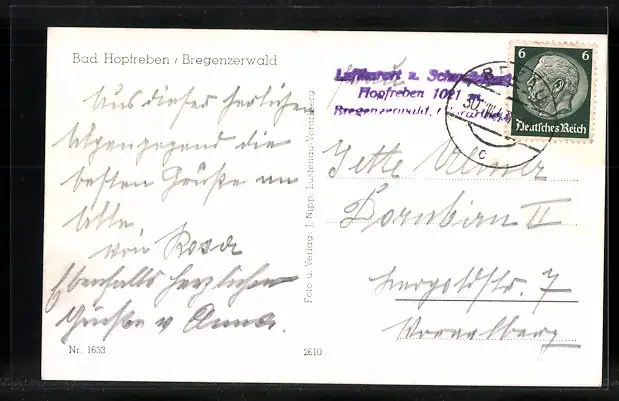 Bad Hopfreben / Bregenzerwald
Aus dieser herrlichen
Alpengegend die
besten Grüße an
alle
von Rosa
Ebenfalls herzlichen
Grüße v Anna.
Nr. 1633
2610
Foto u. Verlag J. Nipp, Lustenau-Vorarlberg
Luftkurort u.
Hopfreben 1021 m
Bregenzerwald,
6
Deutsches Reich
c
Frau
Jette Ulmer
Dornbirn II
7
Vorarlberg